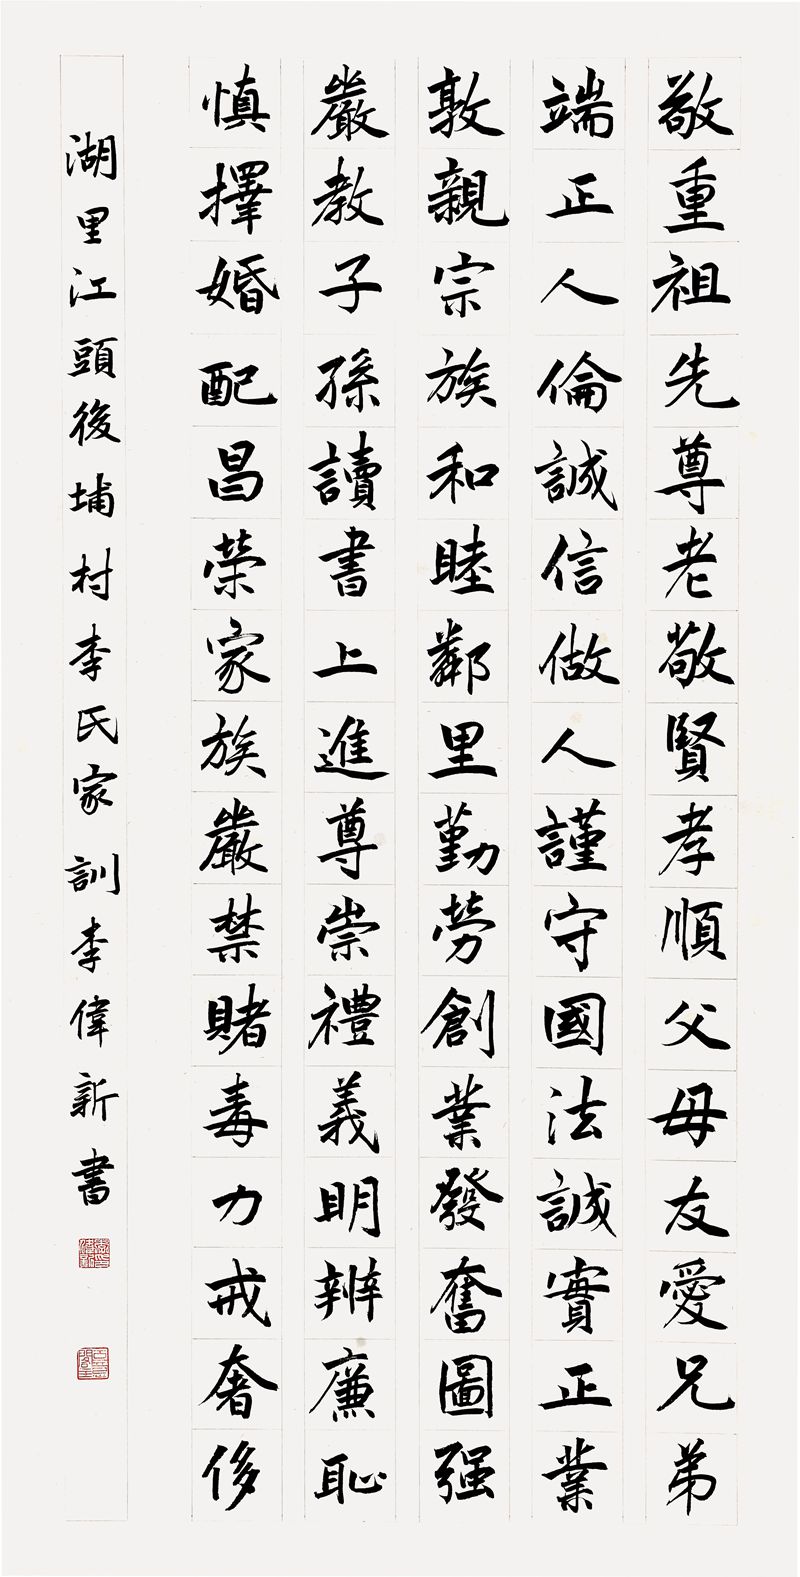 敬重祖先尊老敬賢孝順父母友愛兄弟
端正人倫誠信做人謹守國法誠實正業
敦親宗族和睦鄰里勤勞創業發奮圖强
嚴教子孫讀書上進尊崇禮義明辨廉恥
慎擇婚配昌榮家族嚴禁賭毒力戒奢侈
湖里江頭後埔村李氏家訓李偉新書